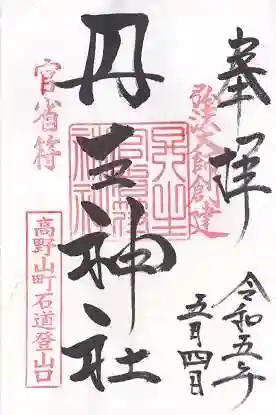 奉拝
弘法大師創建
丹生神社
官省符
高野山町石道登山口
令和五年
五月四日